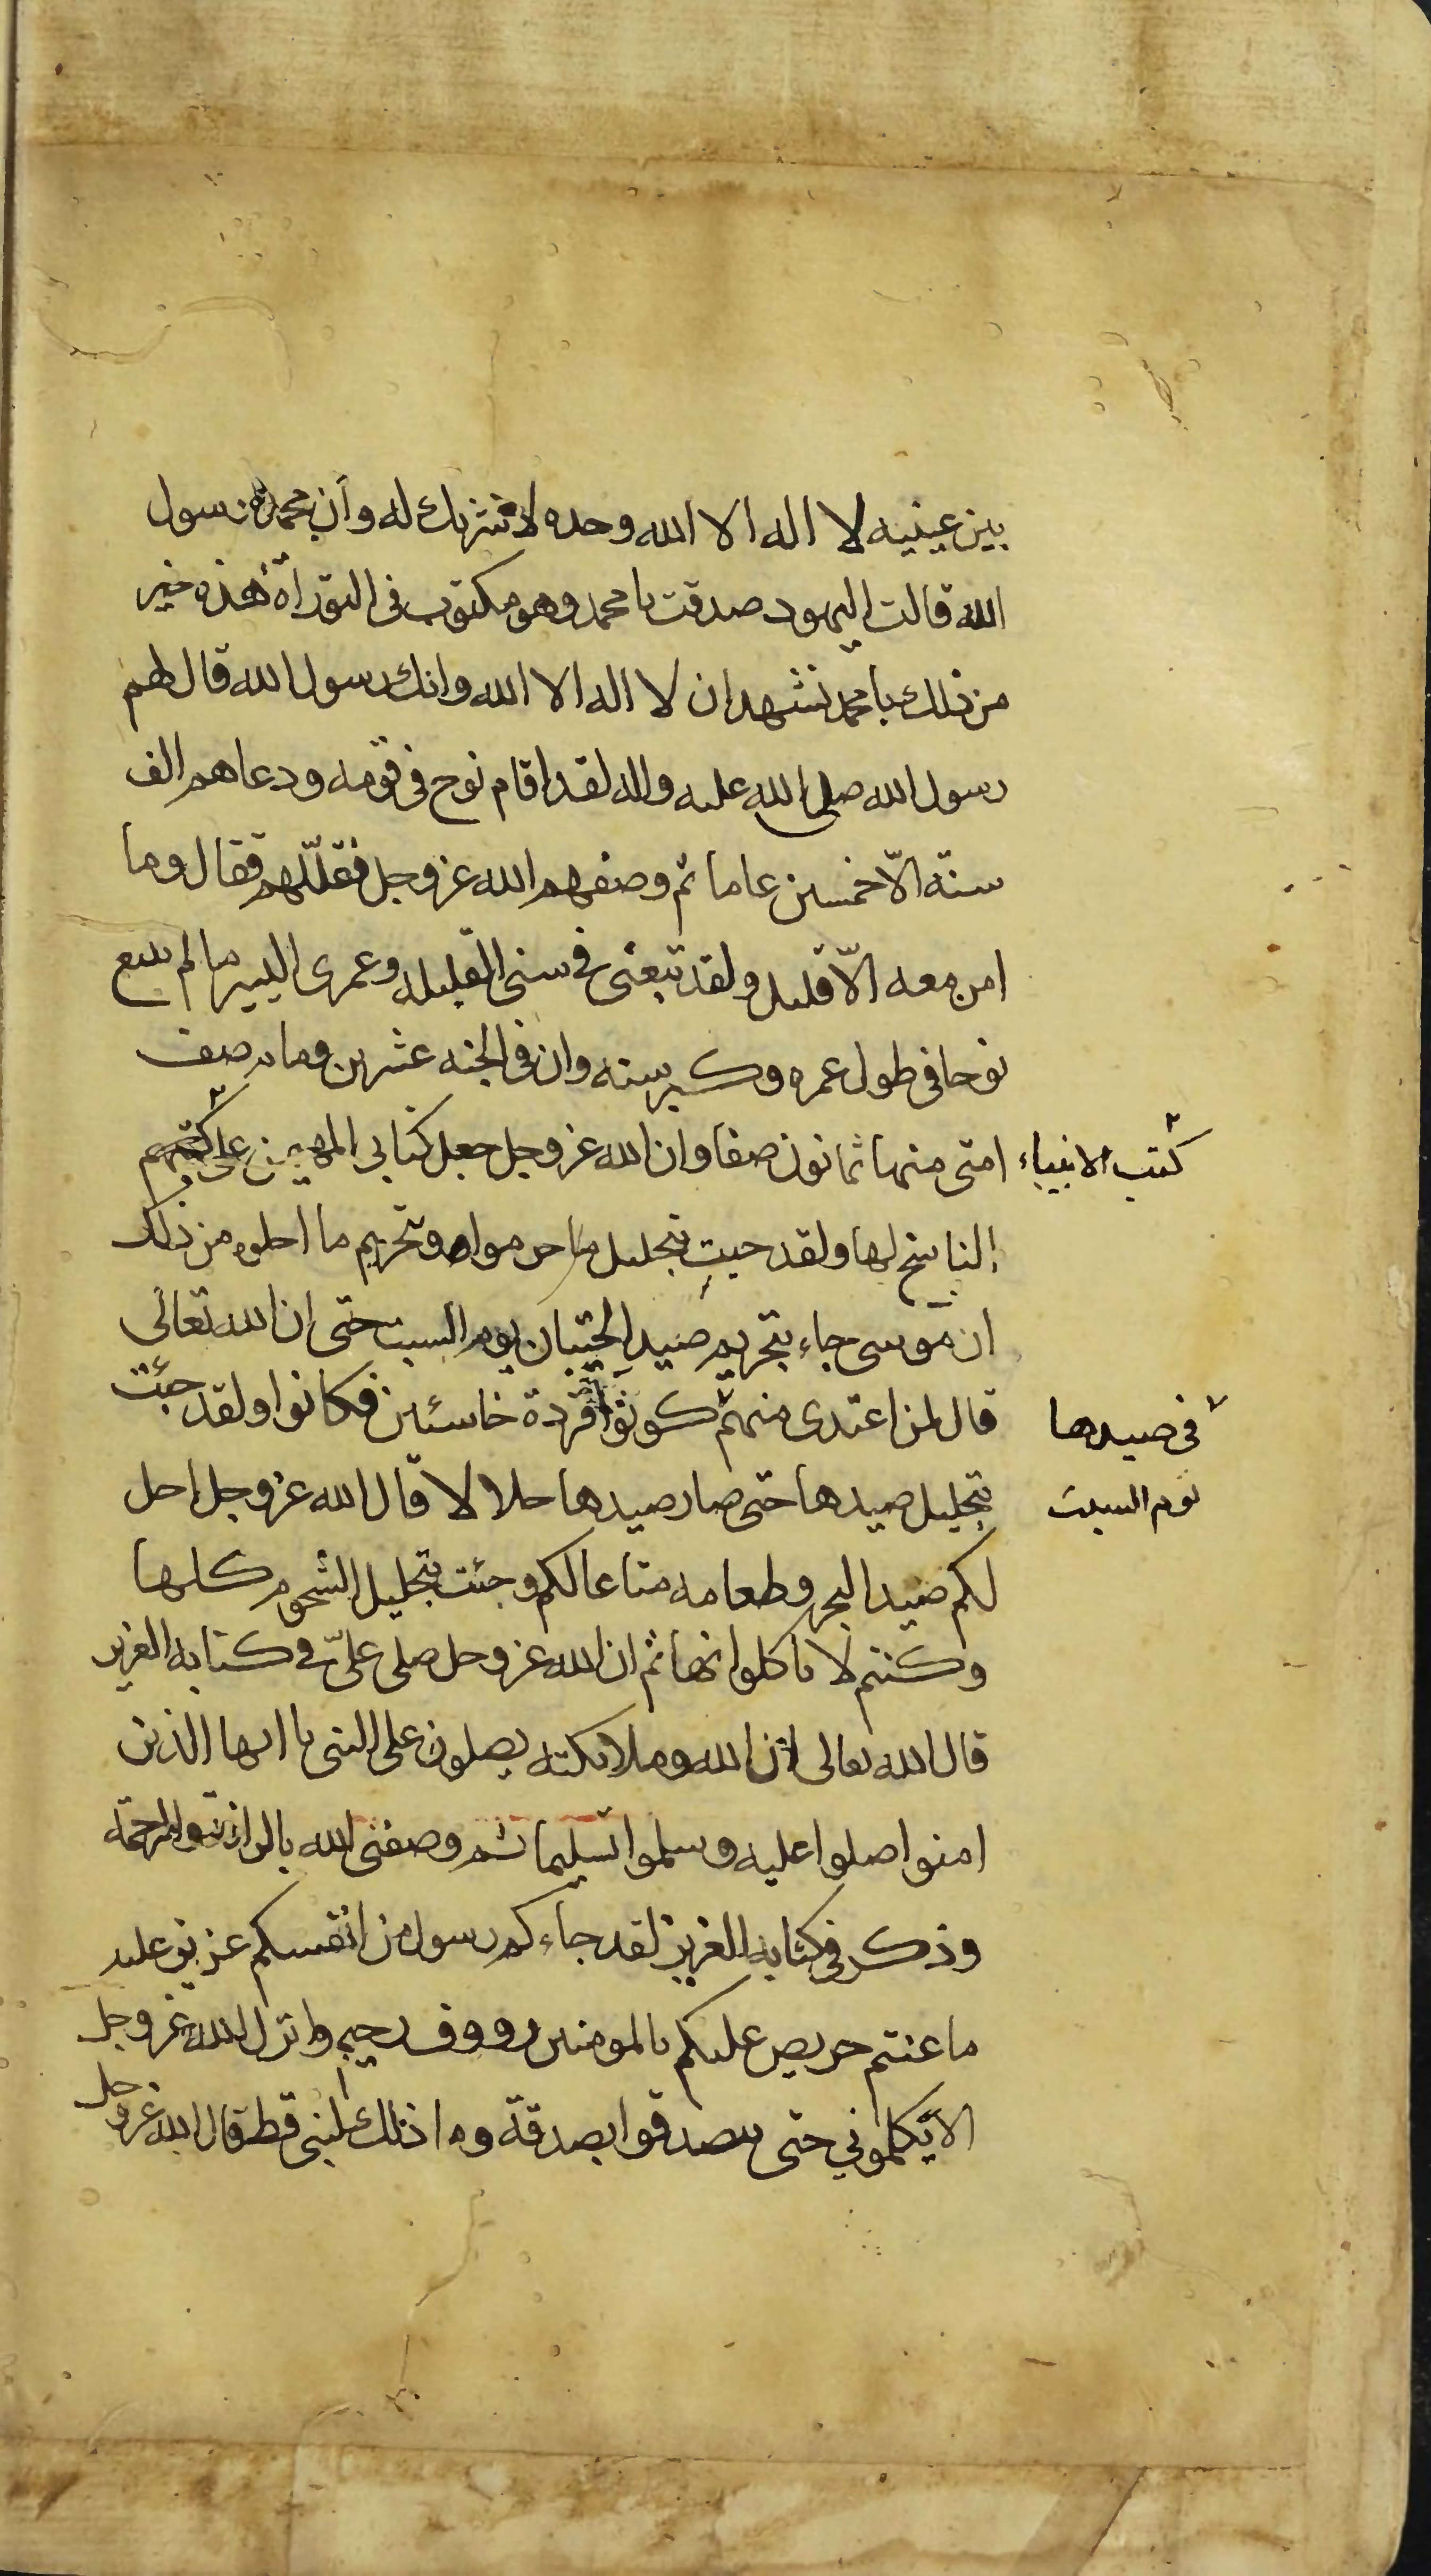 بين عينيه لا اله الا الله وحده لا شريك له وأن محمدا رسول
الله قالت اليهود صدقت يا محمد وهو مكتوب في التوراة هذه خير
من ذلك يا محمد نشهد ان لا اله الا الله وانك رسول الله قال لهم
رسول الله صلى الله عليه واله لقد اقام نوح في قومه ودعاهم الف
سنة الّا خمسين عاما ثم وصفهم الله عز وجل فقلّلهم فقال وما
امن معه الّا قليل ولقد تبعنى في سنى القليله وعمرى اليسير ما لم يتبع
نوحا في طول عمره وكبر سنه وان في الجنه عشرين ومايه صف
امتى منها ثمانون صفا وان الله عز وجل جعل كتابى المهيمن على كتبهم
كتب الانبياء
الناسخ لها ولقد جيت بتحليل ما حرموا وتحريم ما احلوا من ذلك
ان موسى جاء بتحريم صيد الحيتان يوم السبت حتى ان الله تعالى
قال لمن اعتدى منهم كونوا قردة خاسئين فكانوا ولقد جئت
في صيدها
بتحليل صيدها حتى صار صيدها حلالا قال الله عز وجل احل
يوم السبت
لكم صيد البحر وطعامه متاعا لكم وجئت بتحليل الشحوم كلها
وكنتم لا تاكلوانها ثم ان الله عز وجل صلى علىّ في كتابه العزيز
قال الله تعالى ان الله وملائكته يصلون على النبى يا ايها الذين
امنوا صلوا عليه وسلموا تسليما ثم وصفنى الله بالرافة والرحمة
وذكر في كتابه العزيز لقد جاءكم رسول من انفسكم عزيز عليه
ما عنتم حريص عليكم بالمومنين رووف رحيم وانزل الله عز وجل
الا يكلموني حتى يتصدقوا بصدقة وما ذلك لنبى قط قال الله عز وجل